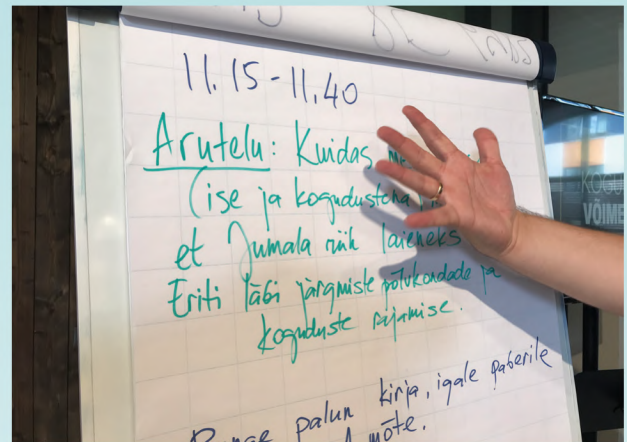 11.15-11.40
Arutelu: Kuidas
(ise ja kogudustena
et Jumala riik laieneks
Eriti läbi järgmiste põlvkondade ja
koguduste rajamise.
palun kirja, igale paberile
mõte.
KOGU
VÕIME